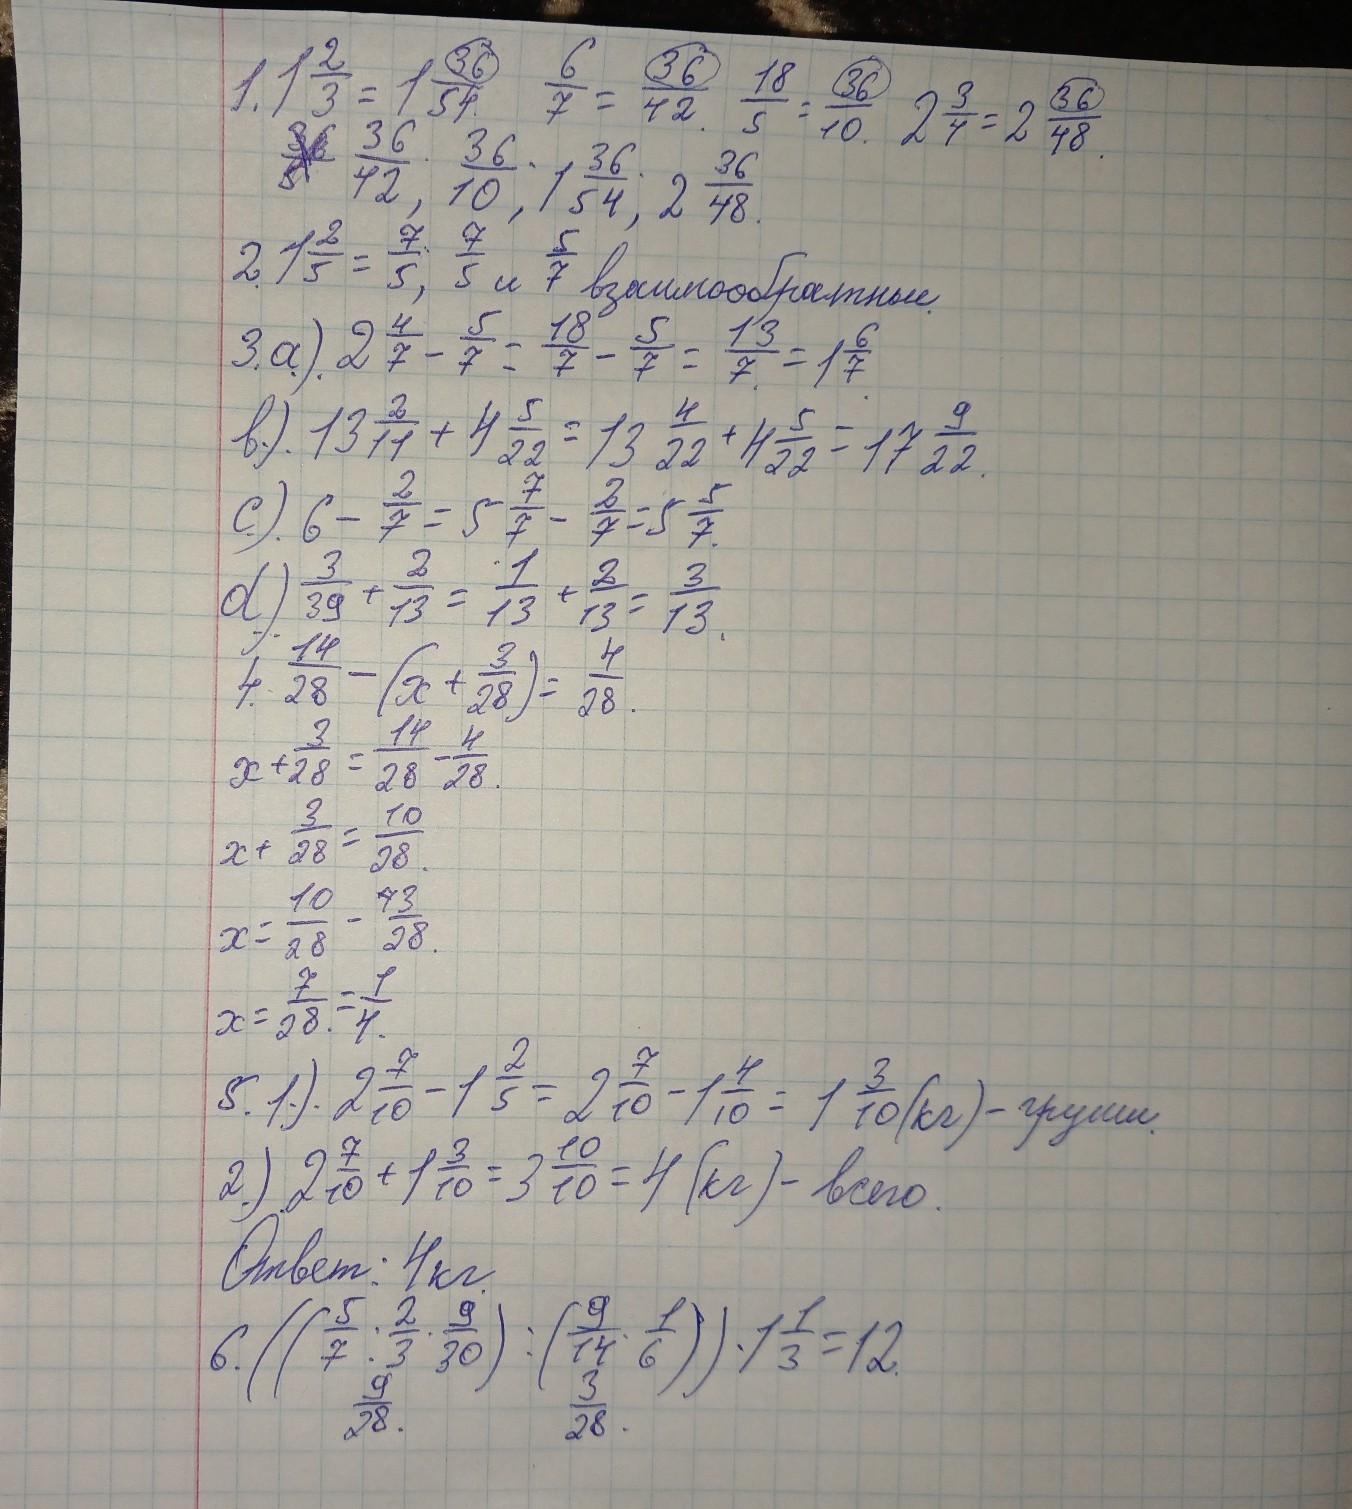 1. 1 2/3 = 1 36/54. 6/7 = 36/42. 18/5 = 36/10. 2 3/4 = 2 36/48.
36/42, 36/10, 1 36/54, 2 36/48.
2. 1 2/5 = 7/5, 7/5 и 5/7 взаимообратные.
3. a). 2 4/7 - 5/7 = 18/7 - 5/7 = 13/7. = 1 6/7
b.). 13 2/11 + 4 5/22 = 13 4/22 + 4 5/22 = 17 9/22.
c.). 6 - 2/7 = 5 7/7 - 2/7 = 5 5/7.
d.) 3/39 + 2/13 = 1/13 + 2/13 = 3/13.
4. 14/28 - (x + 3/28) = 4/28.
x + 3/28 = 14/28 - 4/28.
x + 3/28 = 10/28.
x = 10/28 - 3/28.
x = 7/28. = 1/4.
5. 1.). 2 7/10 - 1 2/5 = 2 7/10 - 1 4/10 = 1 3/10 (кг) - груши.
2.). 2 7/10 + 1 3/10 = 3 10/10 = 4 (кг) - всего.
Ответ: 4 кг.
6. ((5/7 : 2/3 · 9/30) : (9/14 · 1/6)) · 1 1/3 = 12.
9/28. 3/28.